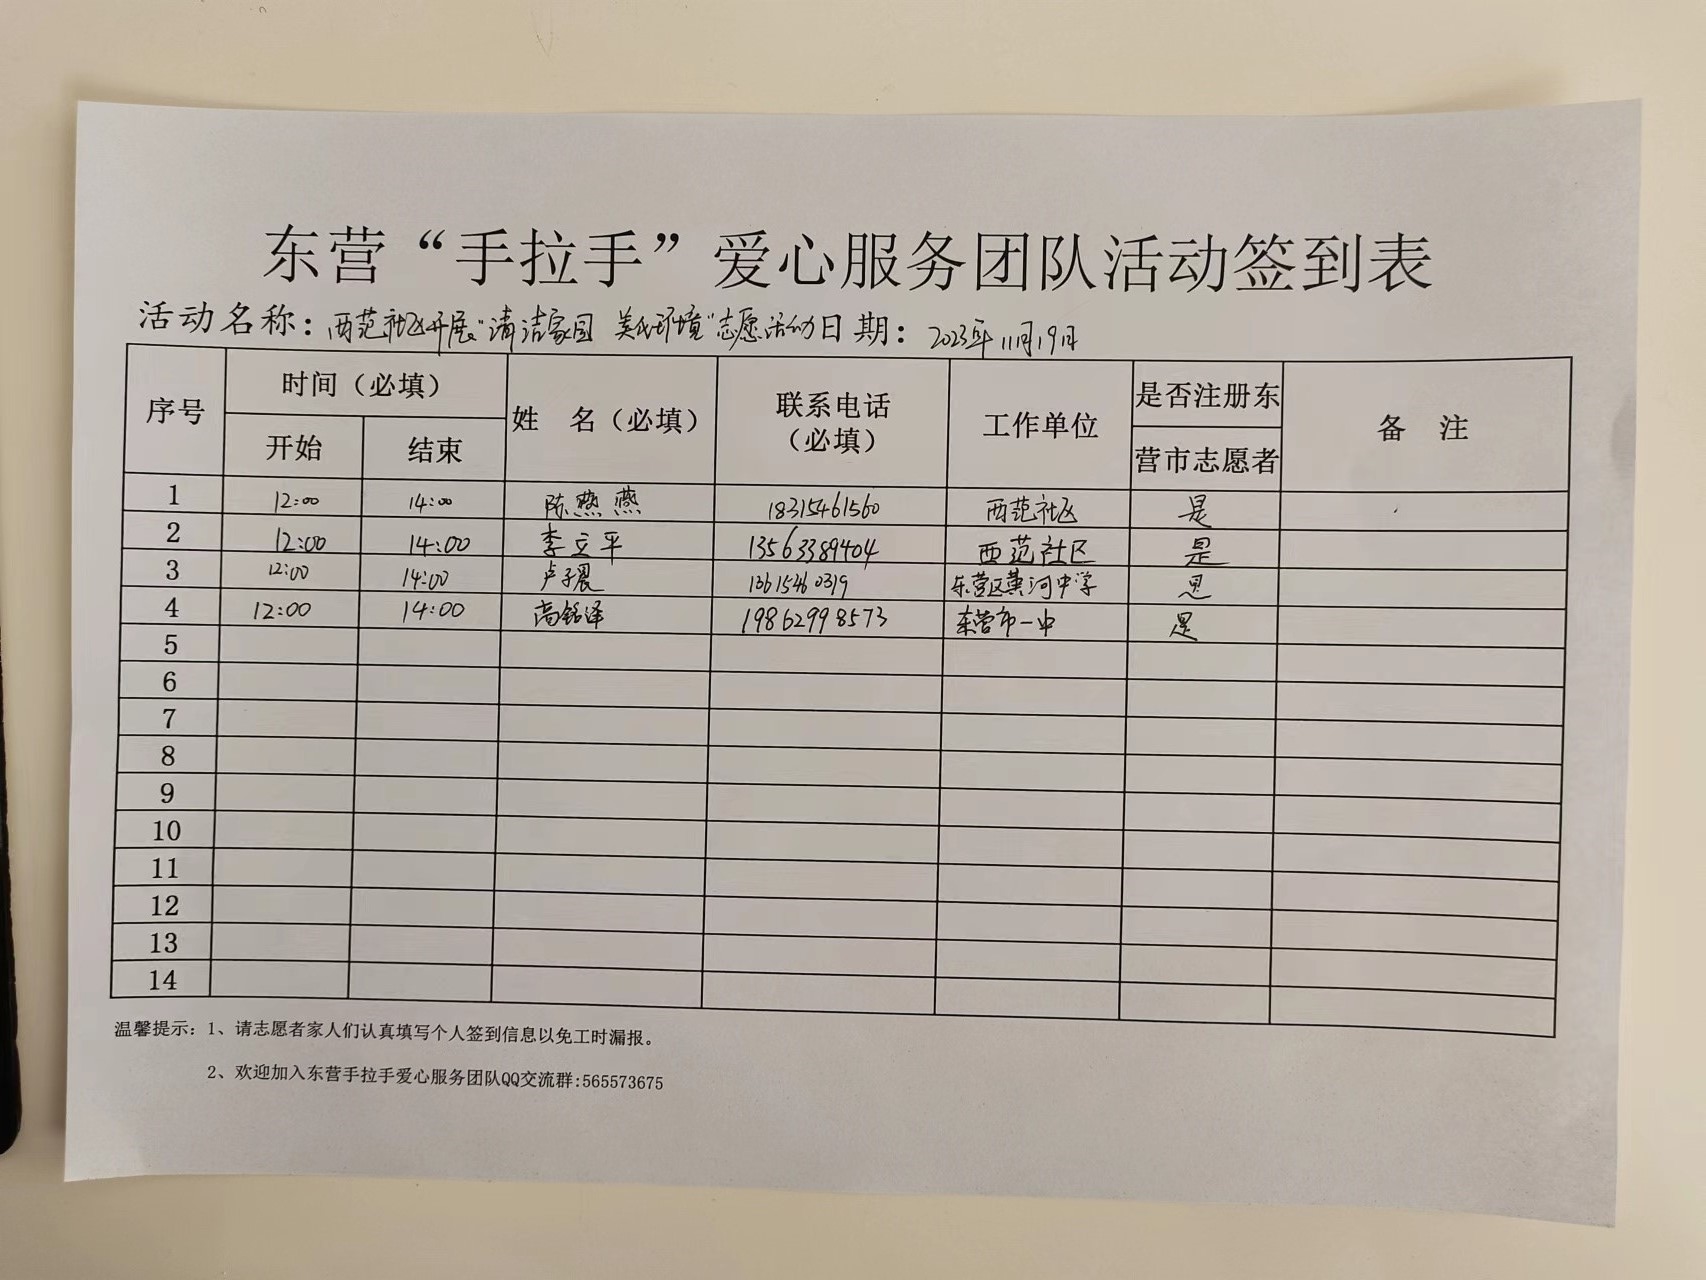 东营“手拉手”爱心服务团队活动签到表
活动名称：西范社区开展“清洁家园 美化环境”志愿活动 日期：2023年11月19日
序号 时间（必填） 姓 名（必填） 联系电话（必填） 工作单位 是否注册东营市志愿者 备 注
开始 结束
1 12:00 14:00 陈燕燕 18315461560 西范社区 是
2 12:00 14:00 李立平 13563389404 西范社区 是
3 12:00 14:00 卢子晨 13615460319 东营区黄河中学 是
4 12:00 14:00 高铭泽 19862998573 东营市一中 是
5
6
7
8
9
10
11
12
13
14
温馨提示：1、请志愿者家人们认真填写个人签到信息以免工时漏报。
2、欢迎加入东营手拉手爱心服务团队QQ交流群:565573675